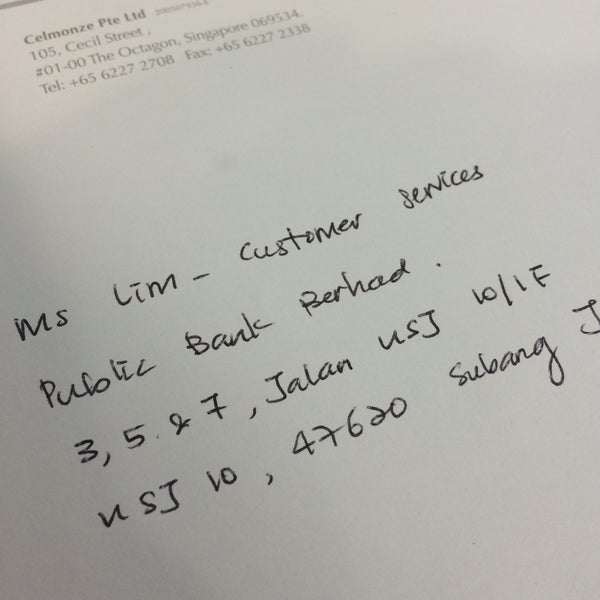 Celmonze Pte Ltd
105, Cecil Street,
#01-00 The Octagon, Singapore 069534.
Tel: +65 6227 2708 Fax: +65 6227 2338
Ms Lim - Customer Services
Public Bank Berhad.
3, 5 & 7, Jalan USJ 10/1F
USJ 10, 47620 Subang J